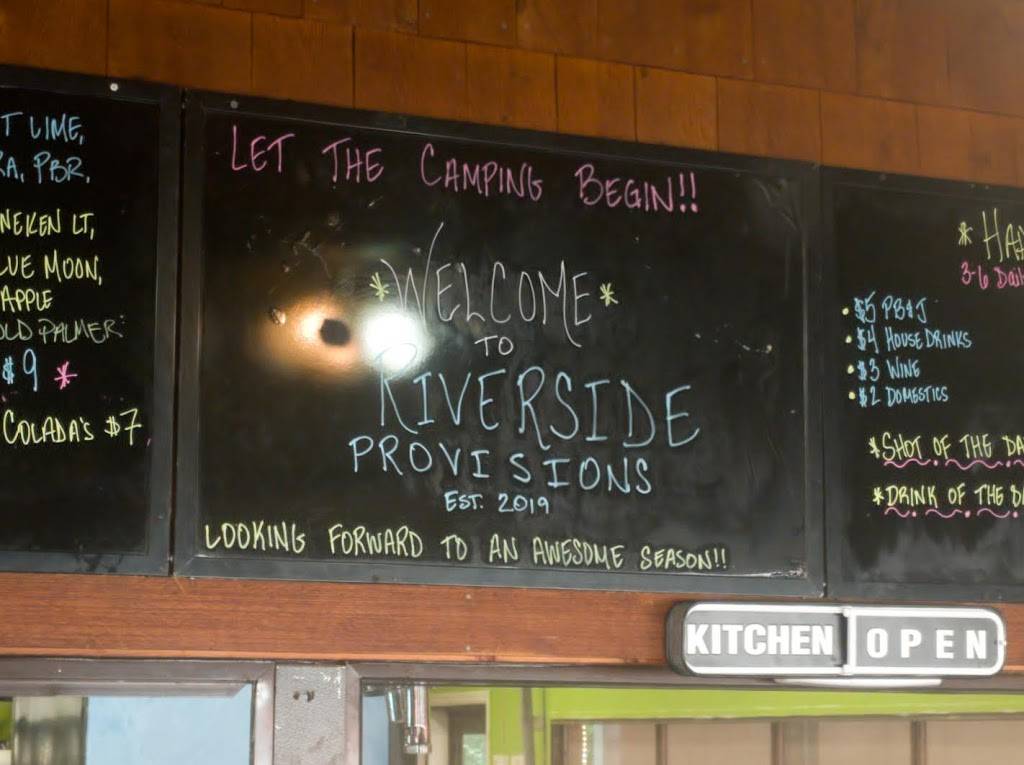 T LIME,
RA, PBR,
NEKEN LT,
LUE MOON,
APPLE
OLD PALMER
$9 *
COLADA'S $7
LET THE CAMPING BEGIN!!
*WELCOME*
TO
RIVERSIDE
PROVISIONS
EST. 2019
LOOKING FORWARD TO AN AWESOME SEASON!!
* HA
3-6 Dail
• $5 PB&J
• $4 HOUSE DRINKS
• $3 WINE
• $2 DOMESTICS
*SHOT OF THE DA
*DRINK OF THE
KITCHEN OPEN